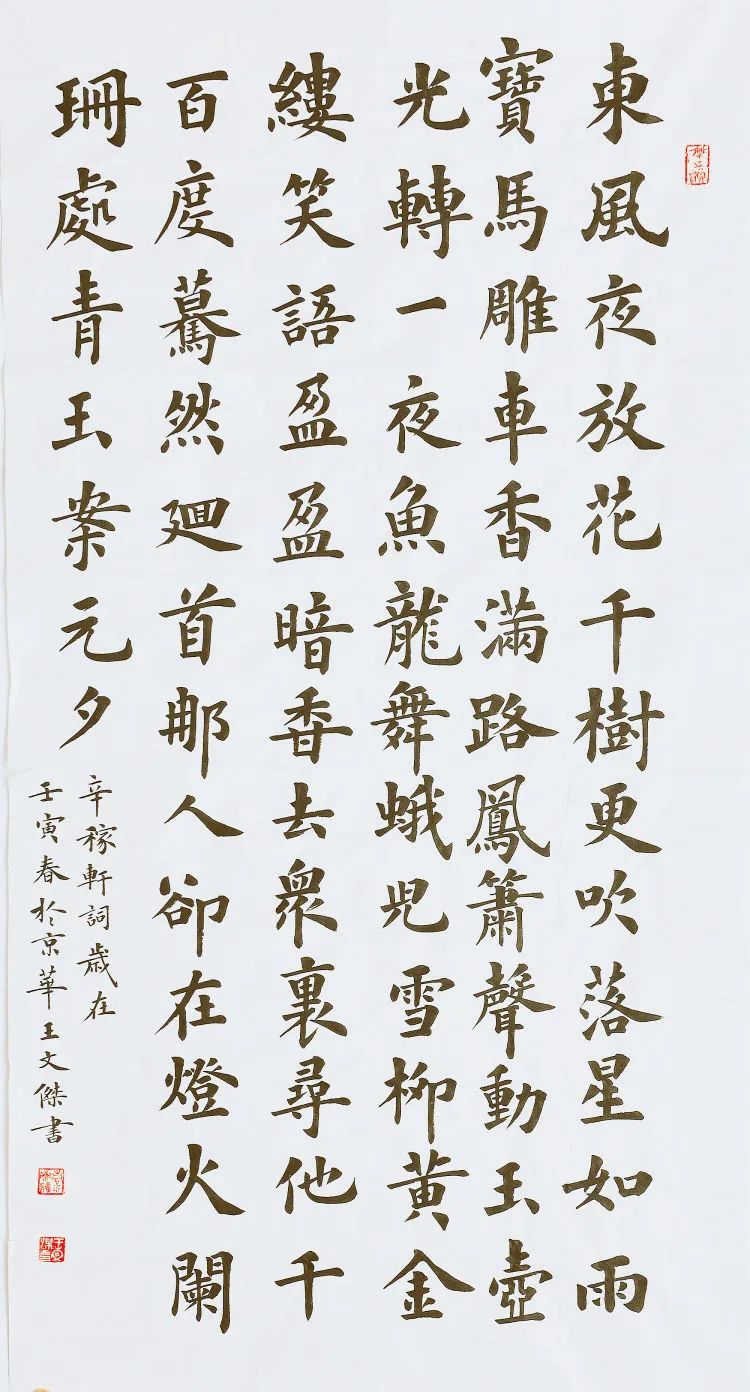 東風夜放花千樹更吹落星如雨
寶馬雕車香滿路鳳簫聲動玉壺
光轉一夜魚龍舞蛾兒雪柳黄金
縷笑語盈盈暗香去衆裏尋他千
百度驀然廻首那人卻在燈火闌
珊處青玉案元夕
辛稼軒詞歲在
壬寅春於京華王文傑書